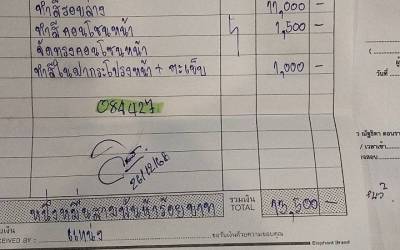 ทำสีรอบล่าง 11,000 -
ทำสีคอนโซนหน้า 1,500 -
จัดทรงคอนโซนหน้า
ทำสีในฝากระโปรงหน้า + ตะเข็บ 1,000 -
084427
26/12/66
หนึ่งหมื่นสามพันห้าร้อยบาท
รวมเงิน
TOTAL 13,500 -
ผู้รับเงิน
RECEIVED BY : แหน่ง
ขอรับเงินด้วยความขอบคุณ
Elephant Brand
วันที่
ว ณัฐธิดา ดอนรา
/ เวลาเข้า